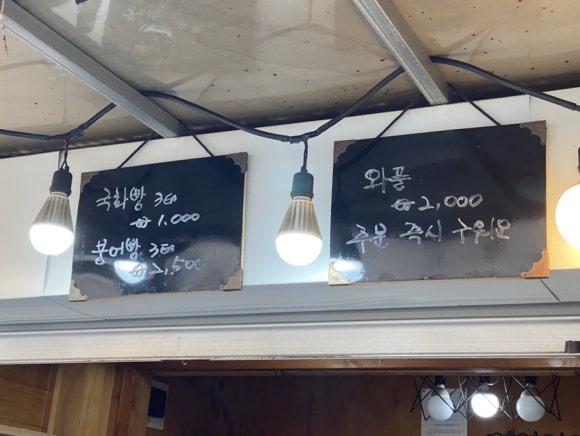 국화빵 3개
₩ 1,000
붕어빵 3개
₩ 2,500
와플
₩ 2,000
주문 즉시 구워요